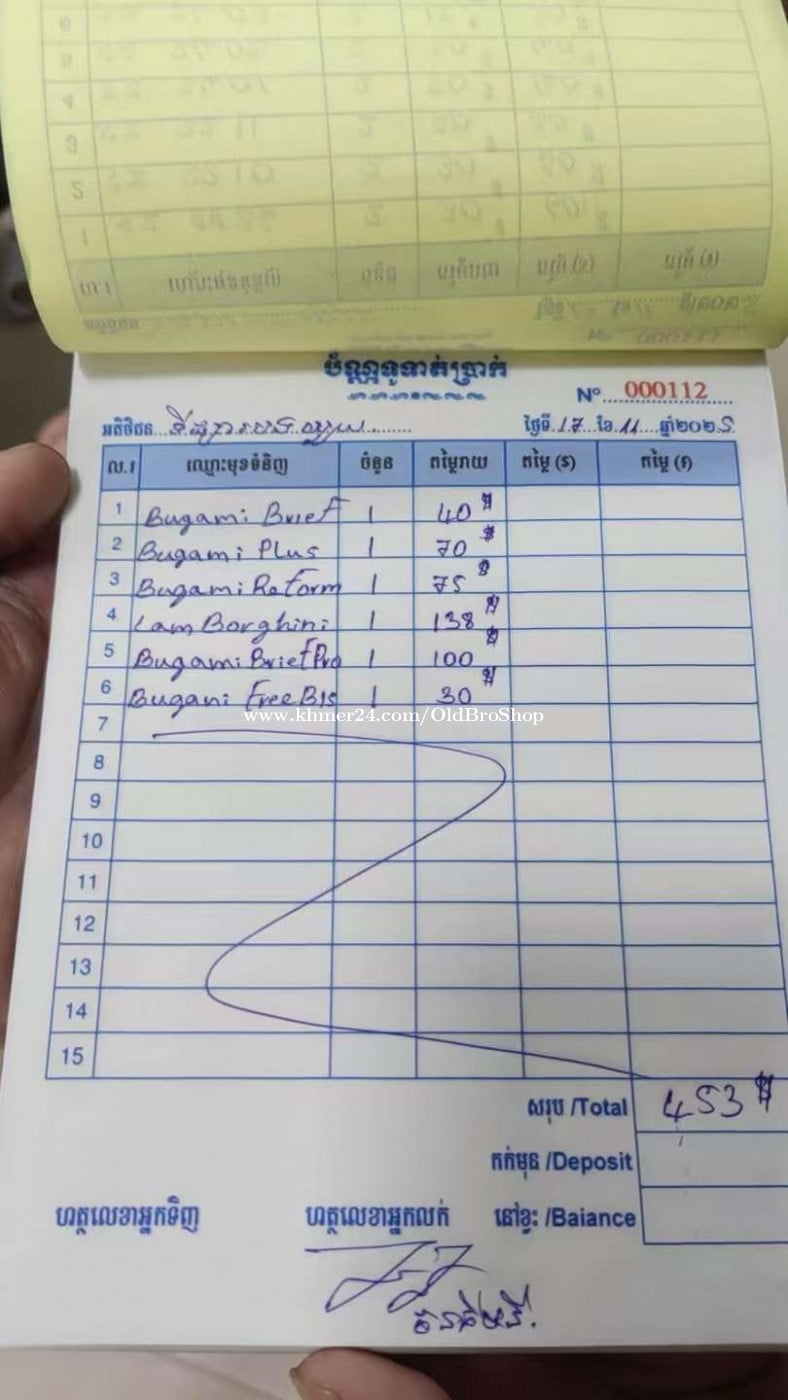 ប័ណ្ណទូទាត់ប្រាក់
Nº 000112
អតិថិជន
ថ្ងៃទី.17...ខែ.11....ឆ្នាំ២០២5
ល.រ ឈ្មោះមុខទំនិញ ចំនួន តម្លៃរាយ តម្លៃ (s) តម្លៃ (៛)
1 Bugami Brief 1 40 $
2 Bugami Plus 1 70 $
3 Bugami Reform 1 75 $
4 Lam Borghini 1 138 $
5 Bugami Brief Pro 1 100 $
6 Bugani FreeBIs 1 30 $
www.khmer24.com/OldBroShop
7
8
9
10
11
12
13
14
15
សរុប /Total 453 $
កក់មុន /Deposit
ហត្ថលេខាអ្នកទិញ ហត្ថលេខាអ្នកលក់ នៅខ្វះ /Baiance